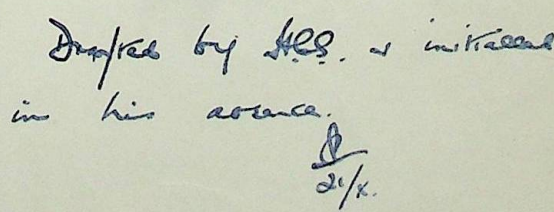 Drafted by H.S.S. & initialled
in his absence.
21/x.